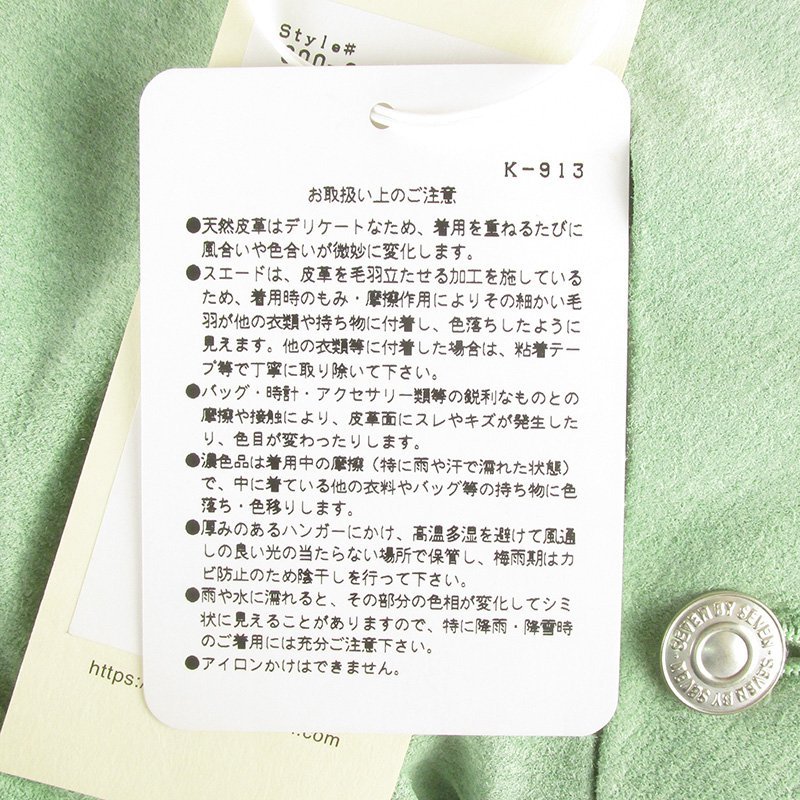 Style#
K-913
お取扱い上のご注意
●天然皮革はデリケートなため、着用を重ねるたびに
風合いや色合いが微妙に変化します。
●スエードは、皮革を毛羽立たせる加工を施している
ため、着用時のもみ・摩擦作用によりその細かい毛
羽が他の衣類や持ち物に付着し、色落ちしたように
見えます。他の衣類等に付着した場合は、粘着テー
プ等で丁寧に取り除いて下さい。
●バッグ・時計・アクセサリー類等の鋭利なものとの
摩擦や接触により、皮革面にスレやキズが発生した
り、色目が変わったりします。
●濃色品は着用中の摩擦（特に雨や汗で濡れた状態）
で、中に着ている他の衣料やバッグ等の持ち物に色
落ち・色移りします。
●厚みのあるハンガーにかけ、高温多湿を避けて風通
しの良い光の当たらない場所で保管し、梅雨期はカ
ビ防止のため陰干しを行って下さい。
●雨や水に濡れると、その部分の色相が変化してシミ
状に見えることがありますので、特に降雨・降雪時
のご着用には充分ご注意下さい。
●アイロンかけはできません。
SEVEN BY SEVEN · SEVEN BY SEVEN ·
https:/
.com